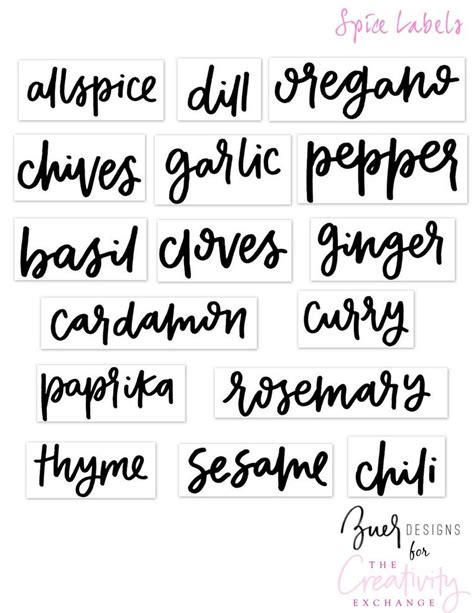 Spice Labels
allspice dill oregano
chives garlic pepper
basil cloves ginger
cardamon curry
paprika rosemary
thyme sesame chili
Zuer DESIGNS
for
THE
Creativity
EXCHANGE